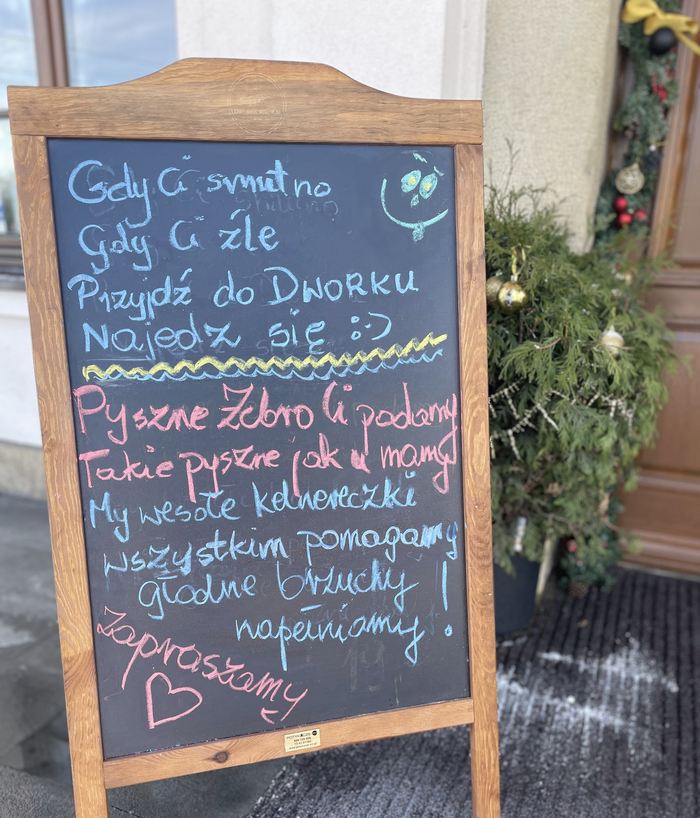 Gdy Ci smutno
Gdy Ci źle
Przyjdź do DWORKU
Najedz się :-)
Pyszne Żebro Ci podamy
Takie pyszne jak u mamy
My wesołe kelnereczki
wszystkim pomagamy
głodne brzuchy
napełniamy!
Zapraszamy